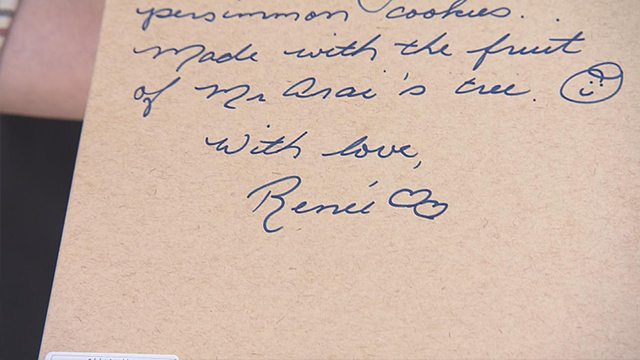 persimmon cookies.
Made with the fruit
of Mr Arai's tree.
With love,
Renée